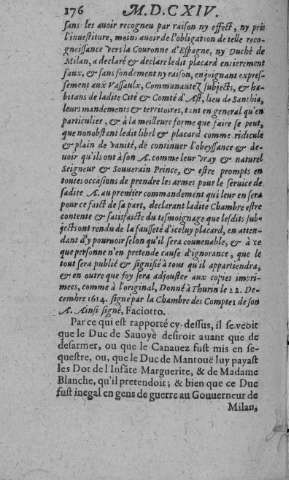 176 M.DCXIV.
sans les auoir recogneu par raison ny effect, ny pris
l'inuestiture, moins auoir de l'obligation de telle reco-
gneissance vers la Couronne d'Espagne, ny Duché de
Milan, a declaré & declare ledit placard entierement
faux, & sans fondement ny raison, enjoignant expres-
sement aux Vassaulx, Communautez subjects, & ha-
bitans de ladite Cité & Comté d'Ast, lieu de Santhia,
leurs mandements & territoires, tant en general qu'en
particulier, & à la meilleure forme que faire se peut,
que nonobstant ledit libel & placard comme ridicule
& plain de vanité, de continuer l'obeyssance & de-
uoir qu'ils ont à son A. comme leur vray & naturel
Seigneur & Souuerain Prince, & estre prompts en
toutes occasions de prendre les armes pour le seruice de
sadite A. au premier commandement qui leur en sera
pour ce faict de sa part, declarant ladite Chambre estre
contente & satisfacte du tesmoignage que lesdits sub-
jects ont rendu de la fausseté d'iceluy placard, en atten-
dant d'y pouruoir selon qu'il sera conuenable, & à ce
que personne n'en pretende cause d'ignorance, que le
tout sera publié & signifié à tout qu'il appartiendra,
& en outre que foy sera adjoustee aux copies impri-
mees, comme à l'original, Donné à Thurin le 22. De-
cembre 1614. signé par la Chambre des Comptes de son
A. Ainsi signé, Faciotto.
Par ce qui est rapporté cy-dessus, il se voit
que le Duc de Sauoye desiroit auant que de
desarmer, ou que le Canauez fust mis en se-
questre, ou, que le Duc de Mantouë luy payast
les Dot de l'Infâte Marguerite, & de Madame
Blanche, qu'il pretendoit; & bien que ce Duc
fust inegal en gens de guerre au Gouuerneur de
Milan,